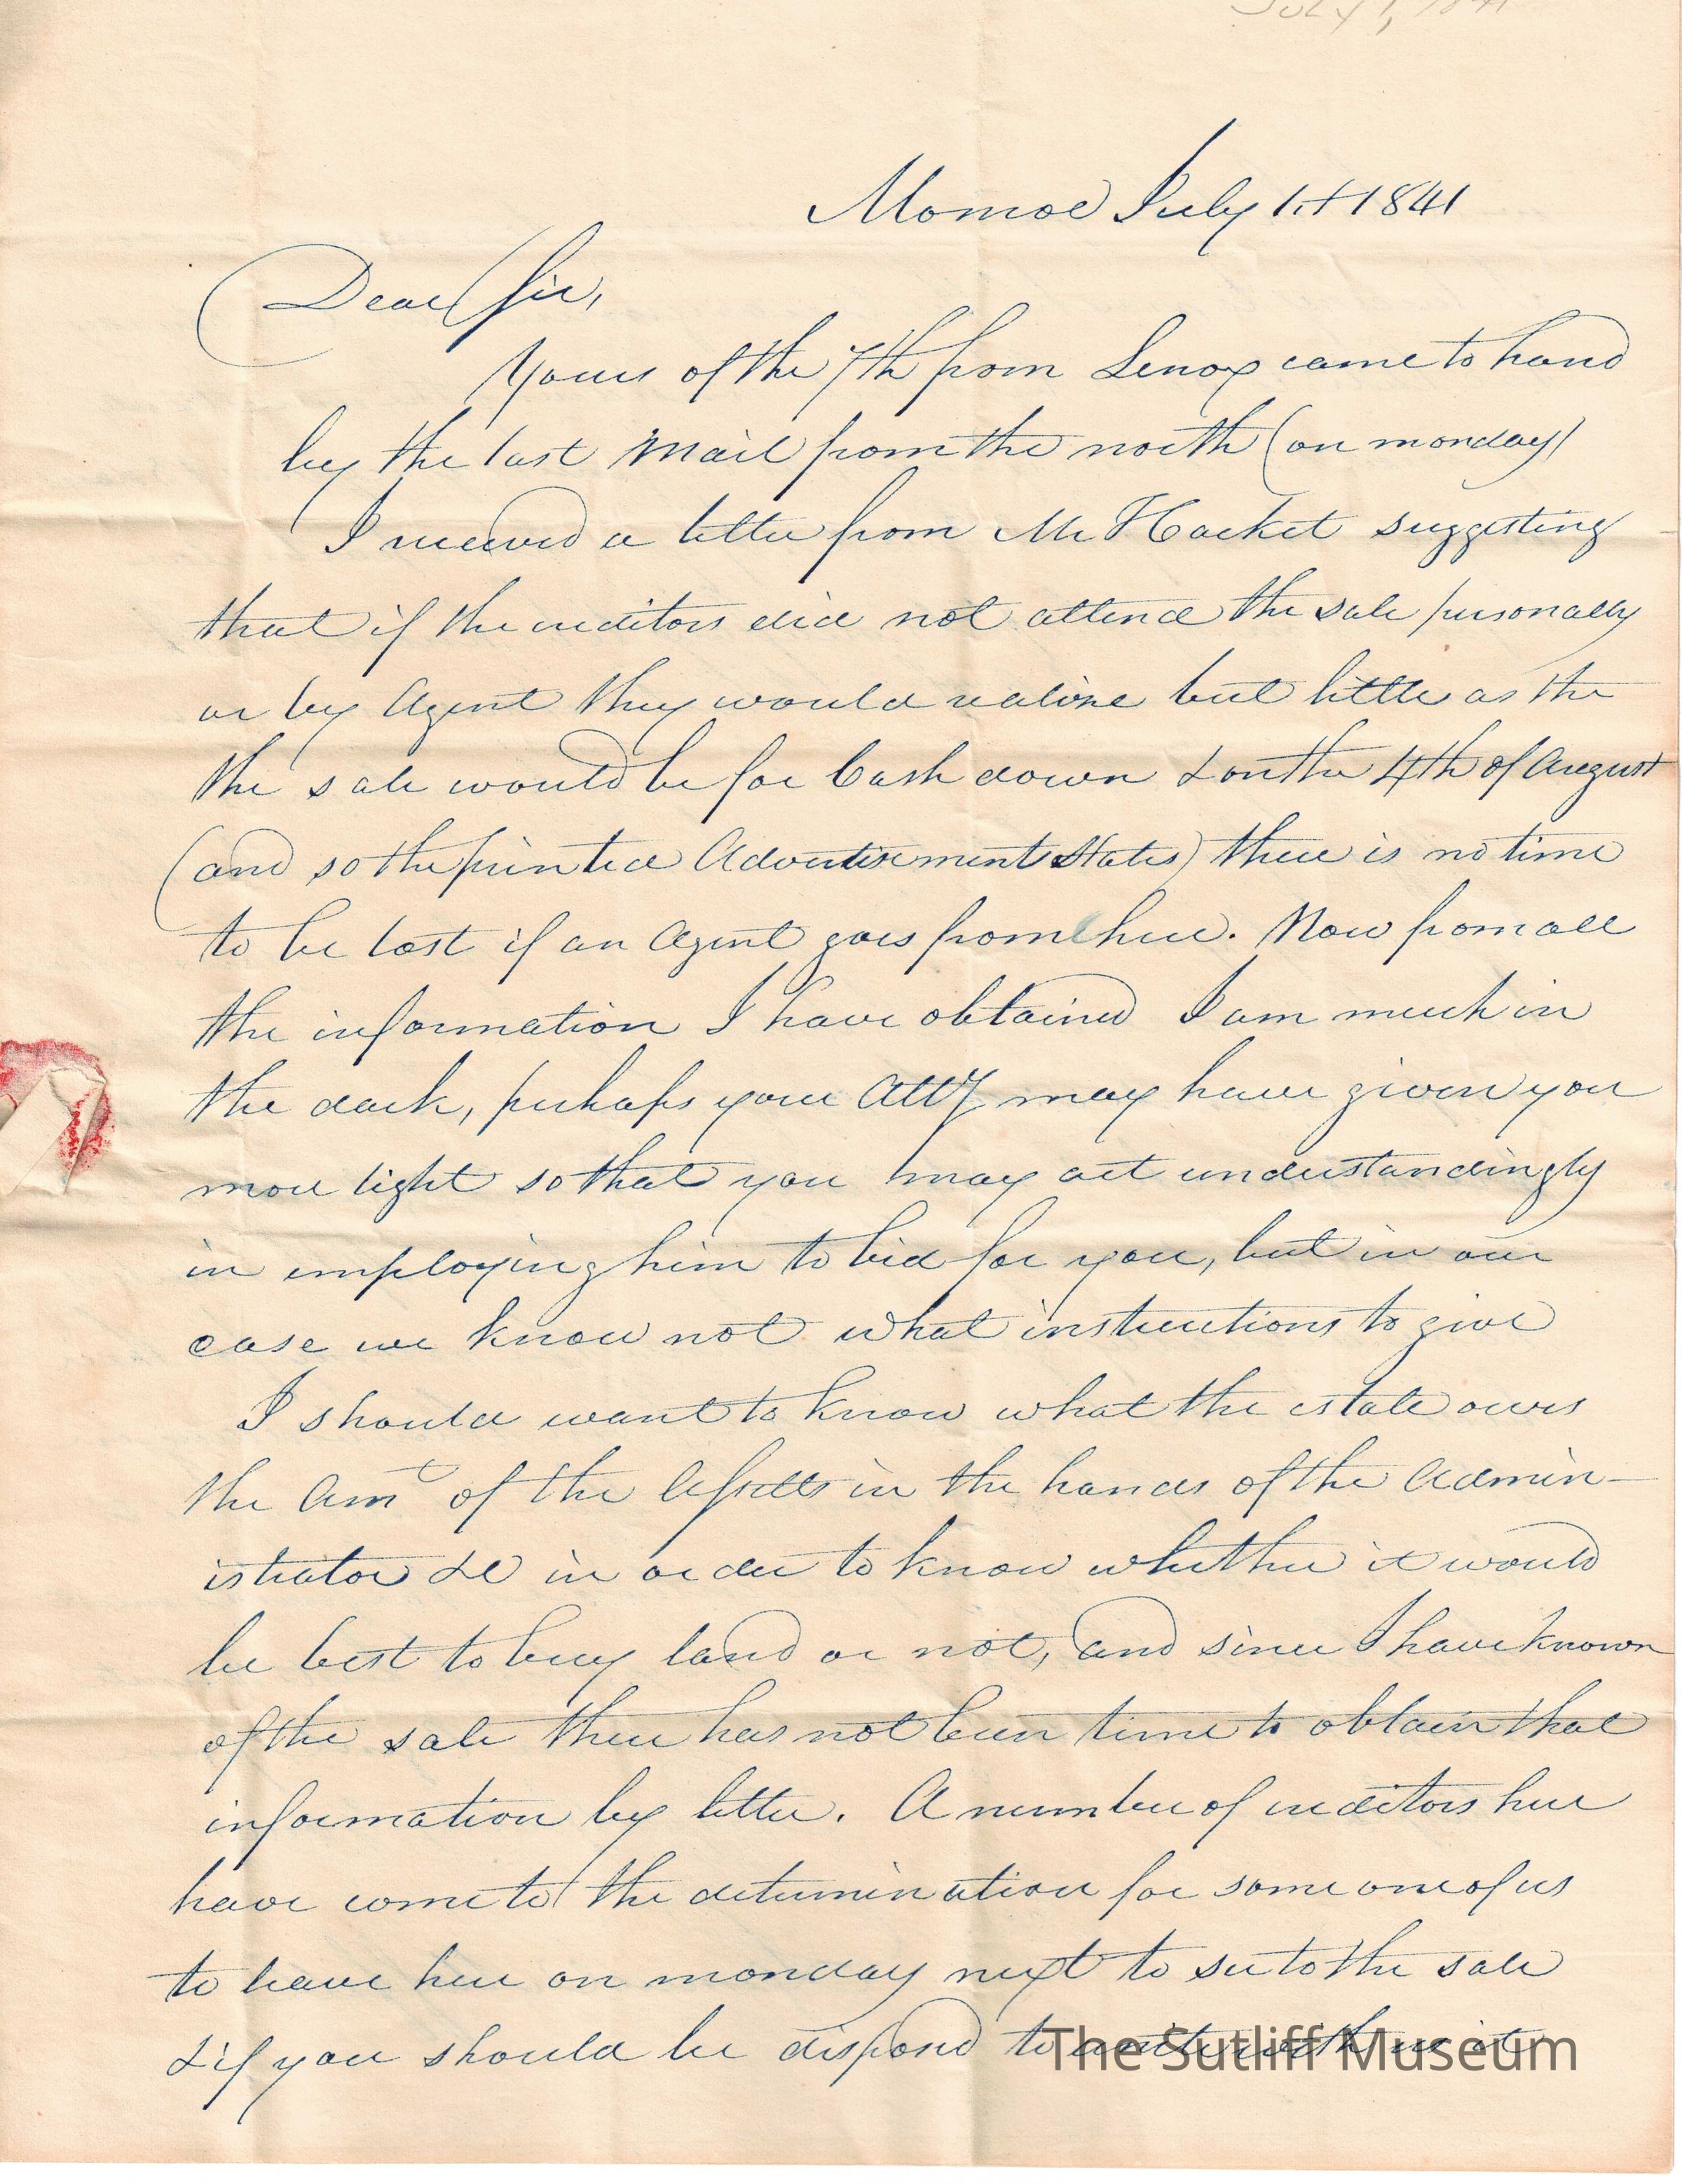 July 1, 1841
Monroe July 1st 1841
Dear Sir,
Yours of the 7th from Lenox came to hand
by the last Mail from the north (on monday)
I received a letter from Mr Hacket suggesting
that if the creditors did not attend the sale personally
or by Agent they would realize but little as the
the sale would be for Cash down & on the 4th of August
(and so the printed Advertisement States) there is no time
to be lost if an Agent goes from here. Now from all
the information I have obtained I am much in
the dark, perhaps your Atty may have given you
more light so that you may act understandingly
in employing him to bid for you, but in our
case we know not what instructions to give
I should want to know what the estate owes
the Amt of the Assetts in the hands of the Admin-
istrator &c in order to know whether it would
be best to buy land or not, and since I have known
of the sale there has not been time to obtain that
information by letter. A number of creditors here
have come to the determination for some one of us
to leave here on monday next to see to the sale
& if you should be disposed to unite with us it
The Sutliff Museum